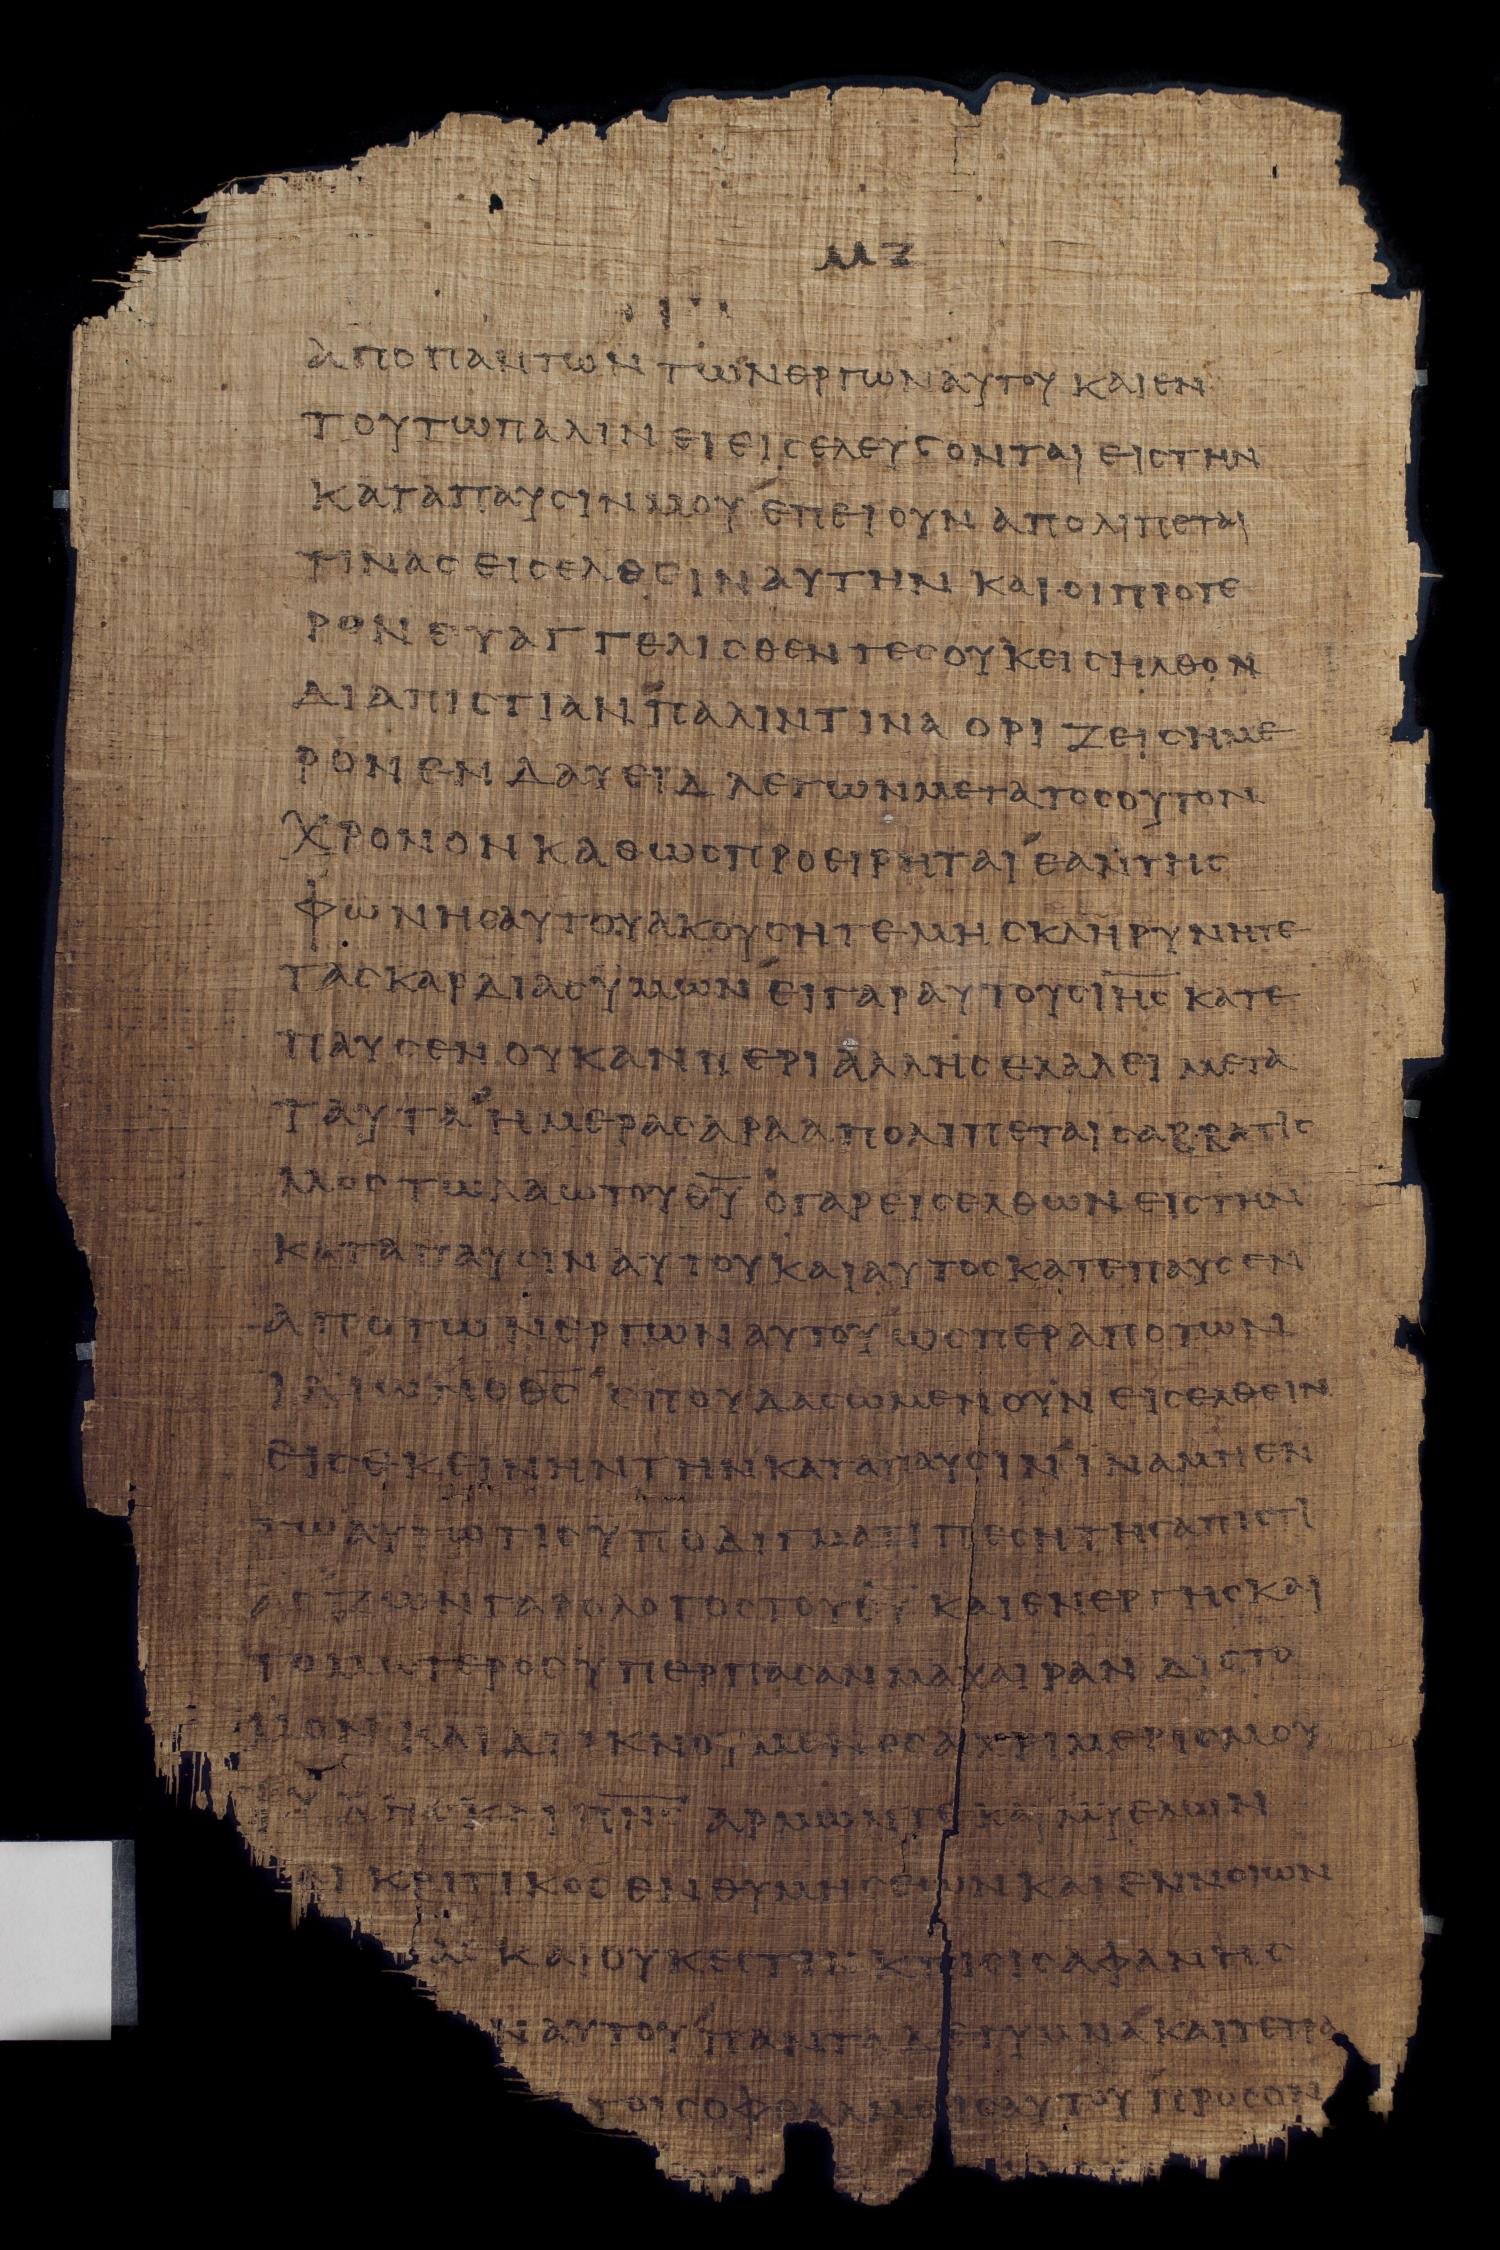 ΜΖ
ΑΠΟΠΑΝΤΩΝΤΩΝΕΡΓΩΝΑΥΤΟΥΚΑΙΕΝ
ΤΟΥΤΩΠΑΛΙΝΕΙΕΙΣΕΛΕΥΣΟΝΤΑΙΕΙΣΤΗΝ
ΚΑΤΑΠΑΥΣΙΝΜΟΥ ΕΠΕΙΟΥΝΑΠΟΛΙΠΕΤΑΙ
ΤΙΝΑΣΕΙΣΕΛΘΕΙΝΑΥΤΗΝΚΑΙΟΙΠΡΟΤΕ
ΡΟΝΕΥΑΓΓΕΛΙΣΘΕΝΤΕΣΟΥΚΕΙΣΗΛΘΟΝ
ΔΙΑΠΙΣΤΙΑΝ ΠΑΛΙΝΤΙΝΑΟΡΙΖΕΙΣΗΜΕ
ΡΟΝΕΝΔΑΥΕΙΔΛΕΓΩΝΜΕΤΑΤΟΣΟΥΤΟΝ
ΧΡΟΝΟΝΚΑΘΩΣΠΡΟΕΙΡΗΤΑΙ ΕΑΝΤΗΣ
ΦΩΝΗΣΑΥΤΟΥΑΚΟΥΣΗΤΕΜΗΣΚΛΗΡΥΝΗΤΕ
ΤΑΣΚΑΡΔΙΑΣΥΜΩΝ ΕΙΓΑΡΑΥΤΟΥΣΙΗΣΚΑΤΕ
ΠΑΥΣΕΝΟΥΚΑΝΠΕΡΙΑΛΛΗΣΕΛΑΛΕΙΜΕΤΑ
ΤΑΥΤΑΗΜΕΡΑΣΑΡΑΑΠΟΛΙΠΕΤΑΙΣΑΒΒΑΤΙΣ
ΜΟΣΤΩΛΑΩΤΟΥΘΥ ΟΓΑΡΕΙΣΕΛΘΩΝΕΙΣΤΗΝ
ΚΑΤΑΠΑΥΣΙΝΑΥΤΟΥΚΑΙΑΥΤΟΣΚΑΤΕΠΑΥΣΕΝ
ΑΠΟΤΩΝΕΡΓΩΝΑΥΤΟΥ ΩΣΠΕΡΑΠΟΤΩΝ
ΙΔΙΩΝΟΘΣ ΣΠΟΥΔΑΣΩΜΕΝΟΥΝΕΙΣΕΛΘΕΙΝ
ΕΙΣΕΚΕΙΝΗΝΤΗΝΚΑΤΑΠΑΥΣΙΝ ΙΝΑΜΗΕΝ
ΤΩΑΥΤΩΤΙΣΥΠΟΔΙΓΜΑΤΙΠΕΣΗΤΗΣΑΠΙΣΤΙ
ΑΣ ΖΩΝΓΑΡΟΛΟΓΟΣΤΟΥΘΥΚΑΙΕΝΕΡΓΗΣΚΑΙ
ΤΟΜΩΤΕΡΟΣΥΠΕΡΠΑΣΑΝΜΑΧΑΙΡΑΝΔΙΣΤΟ
ΜΟΝΚΑΙΔΙΙΚΝΟΥΜΕΝΟΣΑΧΡΙΜΕΡΙΣΜΟΥ
ΨΥΧΗΣΚΑΙΠΝΣΑΡΜΩΝΤΕΚΑΙΜΥΕΛΩΝ
ΑΙΚΡΙΤΙΚΟΣΕΝΘΥΜΗΣΕΩΝΚΑΙΕΝΝΟΙΩΝ
ΑΣ ΚΑΙΟΥΚΕΣΤΙΝΚΤΙΣΙΣΑΦΑΝΗΣ
ΝΑΥΤΟΥ ΠΑΝΤΑΔΕΓΥΜΝΑΚΑΙΤΕΤΡΑ
ΤΟΙΣΟΦΘΑΛΜΟΙΣΑΥΤΟΥ ΠΡΟΣΟΝ